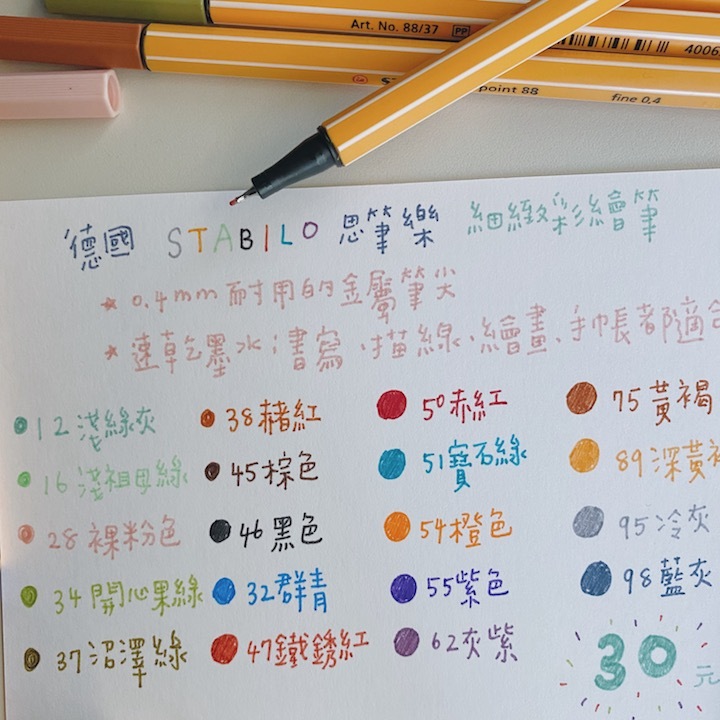 Art. No. 88/37 PP
4006
point 88 fine 0,4
德國 STABILO 思筆樂 細緻彩繪筆
★ 0.4mm 耐用的金屬筆尖
★ 速乾墨水;書寫、描線、繪畫、手帳都適合
12 淺綠灰
38 赭紅
50 赤紅
75 黃褐
16 淺祖母綠
45 棕色
51 寶石綠
89 深黃褐
28 裸粉色
46 黑色
54 橙色
95 冷灰
34 開心果綠
32 群青
55 紫色
98 藍灰
37 沼澤綠
47 鐵銹紅
62 灰紫
30 元